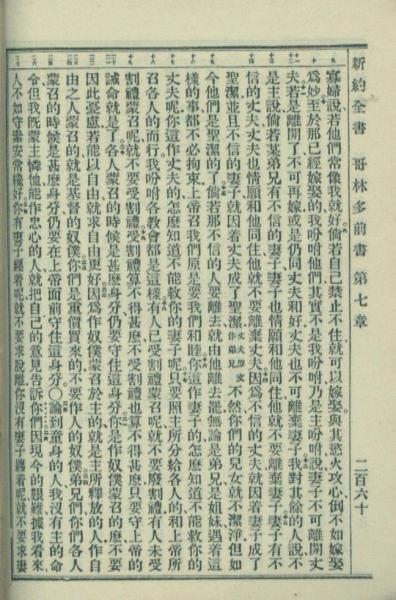 新約全書 哥林多前書 第七章 二百六十
寡婦說若他們常像我就好倘若自己禁止不住就可以嫁娶與其慾火攻心倒不如嫁娶
為妙至於那已經嫁娶的我吩咐他們其實不是我吩咐乃是主吩咐說妻子不可離開丈
夫若是離開了不可再嫁或是仍同丈夫和好丈夫也不可離棄妻子我對其餘的人說不
是主說倘若某弟兄有不信的妻子妻子也情願和他同住他就不要離棄妻子妻子有不
信的丈夫丈夫也情願和他同住他就不要離棄丈夫因為不信的丈夫就因着妻子成了
聖潔並且不信的妻子就因着丈夫成了聖潔丈夫原文作弟兄不然你們的兒女就不潔淨但如
今他們是聖潔的了倘若那不信的人要離去就由他離去罷無論是弟兄是姐妹遇着這
樣的事都不必拘束上帝召我們原是要我們和睦你這作妻子的怎麽知道不能救你的
丈夫呢你這作丈夫的怎麽知道不能救你的妻子呢只要照主所分給各人的和上帝所
召各人的而行我吩咐各教會都是這樣有人已受割禮蒙召呢就不要廢割禮有人未受
割禮蒙召呢就不要受割禮受割禮算不得甚麽不受割禮也算不得甚麽只要守上帝的
誡命就是了各人蒙召的時候是甚麽身分仍要守住這身分你是作奴僕蒙召的麽不要
因此憂慮若能以自由就求自由更好因為作奴僕蒙召於主的就是主所釋放的人作自
由之人蒙召的就是基督的奴僕你們是重價買來的不要作人的奴僕弟兄們你們各人
蒙召的時候是甚麽身分仍要在上帝面前守住這身分○論到童身的人我沒有主的命
令但我既蒙主憐恤能作忠心的人就把自己的意見告訴你們因現今的艱難據我看來
人不如守素安常纔好你有妻子纏着呢就不要求脫離你沒有妻子纏着呢就不要求妻